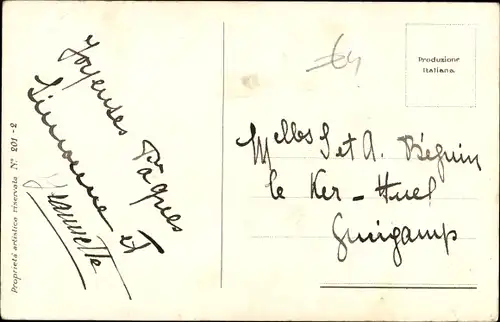 Joyeuses Pâques
Simonne et
Jeannette
Proprietà artistica riservata N° 201-2
Produzione
Italiana.
Melles S et A. Béguin
le Ker-Huel
Guingamp